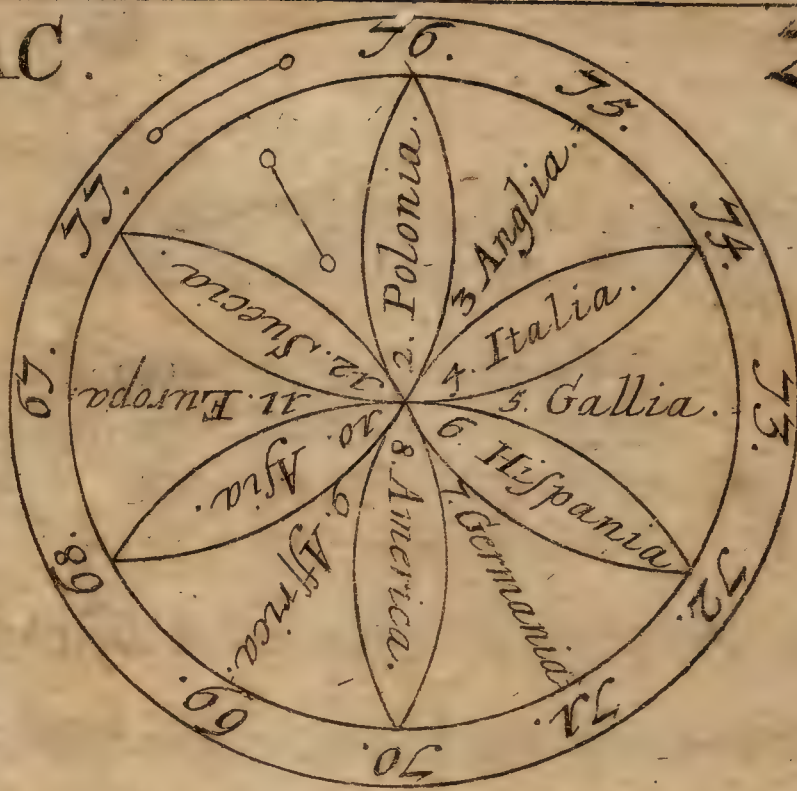 C.
76.
75.
74.
73.
72.
71.
70.
69.
68.
67.
77.
2. Polonia.
3 Anglia.
4. Italia.
5. Gallia.
6. Hiſpania
7. Germania
8. America.
9. Affrica.
10. Aſia.
11. Europa.
12. Suecia.